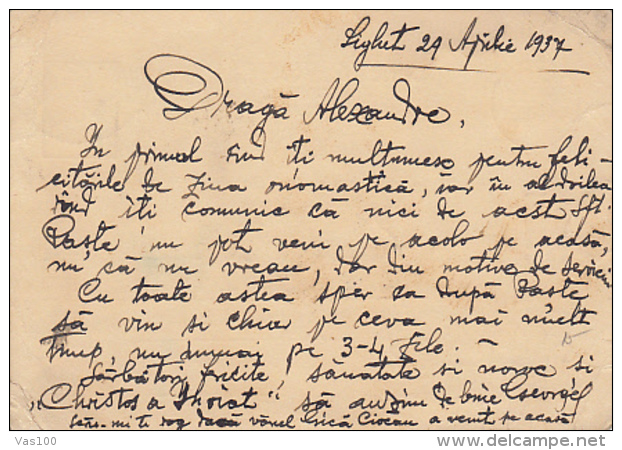 Sighet 29 Aprilie 1937
Dragă Alexandre,
In primul rind iti multumesc pentru feli-
citările de ziua onomastică, iar în al doilea
rînd iti comunic că nici de acest Sft.
Paste nu pot veni pe acolo pe acasă,
nu că nu vreau, dar din motive de serviciu
Cu toate astea sper ca după Paste
să vin si chiar pe ceva mai mult
timp, nu numai pe 3-4 zile. –
Sărbători fericite, sănatate si noroc si
"Christos a Inviat" să auzim de bine
scris-mi te rog dacă a venit pe acasă
Vas100
delcampe.net